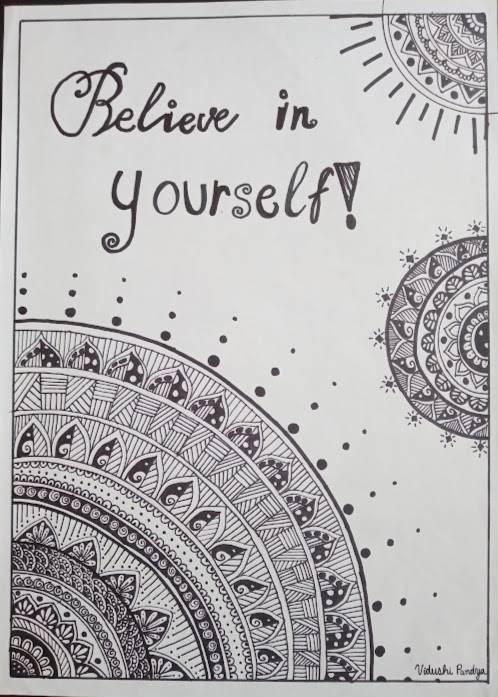 Believe in
yourself!
Vidushi Pandya